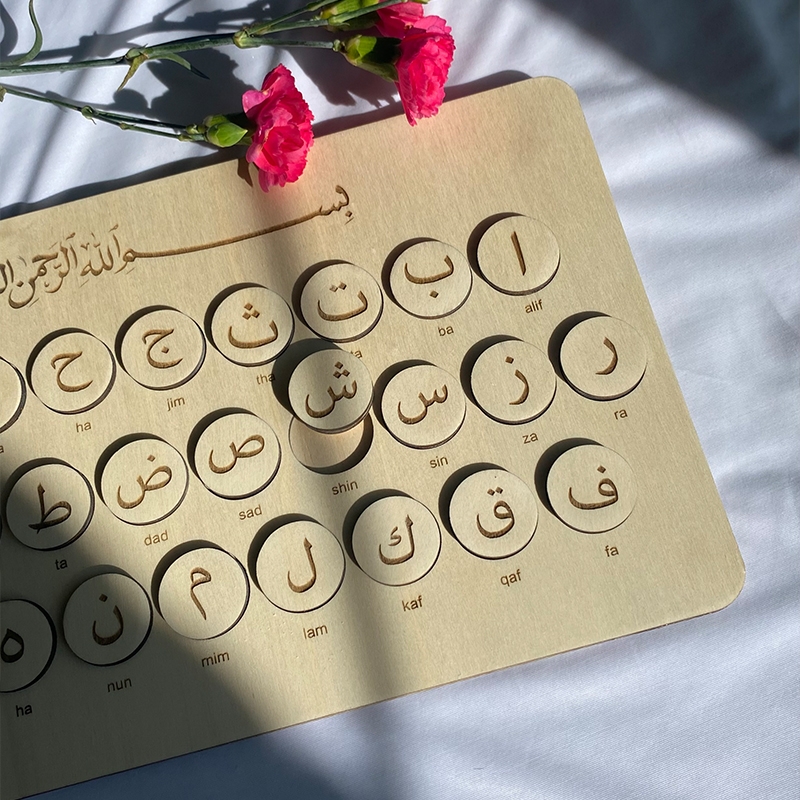 بسم الله الرحمن
ا ب ت ث ج ح
alif ba ta tha jim ha
ر ز س ش ص ض ط
ra za sin shin sad dad ta
ف ق ك ل م ن ه
fa qaf kaf lam mim nun ha